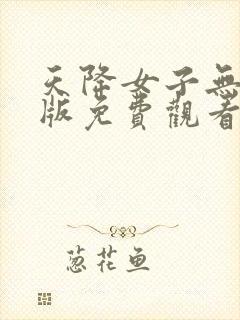 天降女子無
版免費觀看
葱花鱼